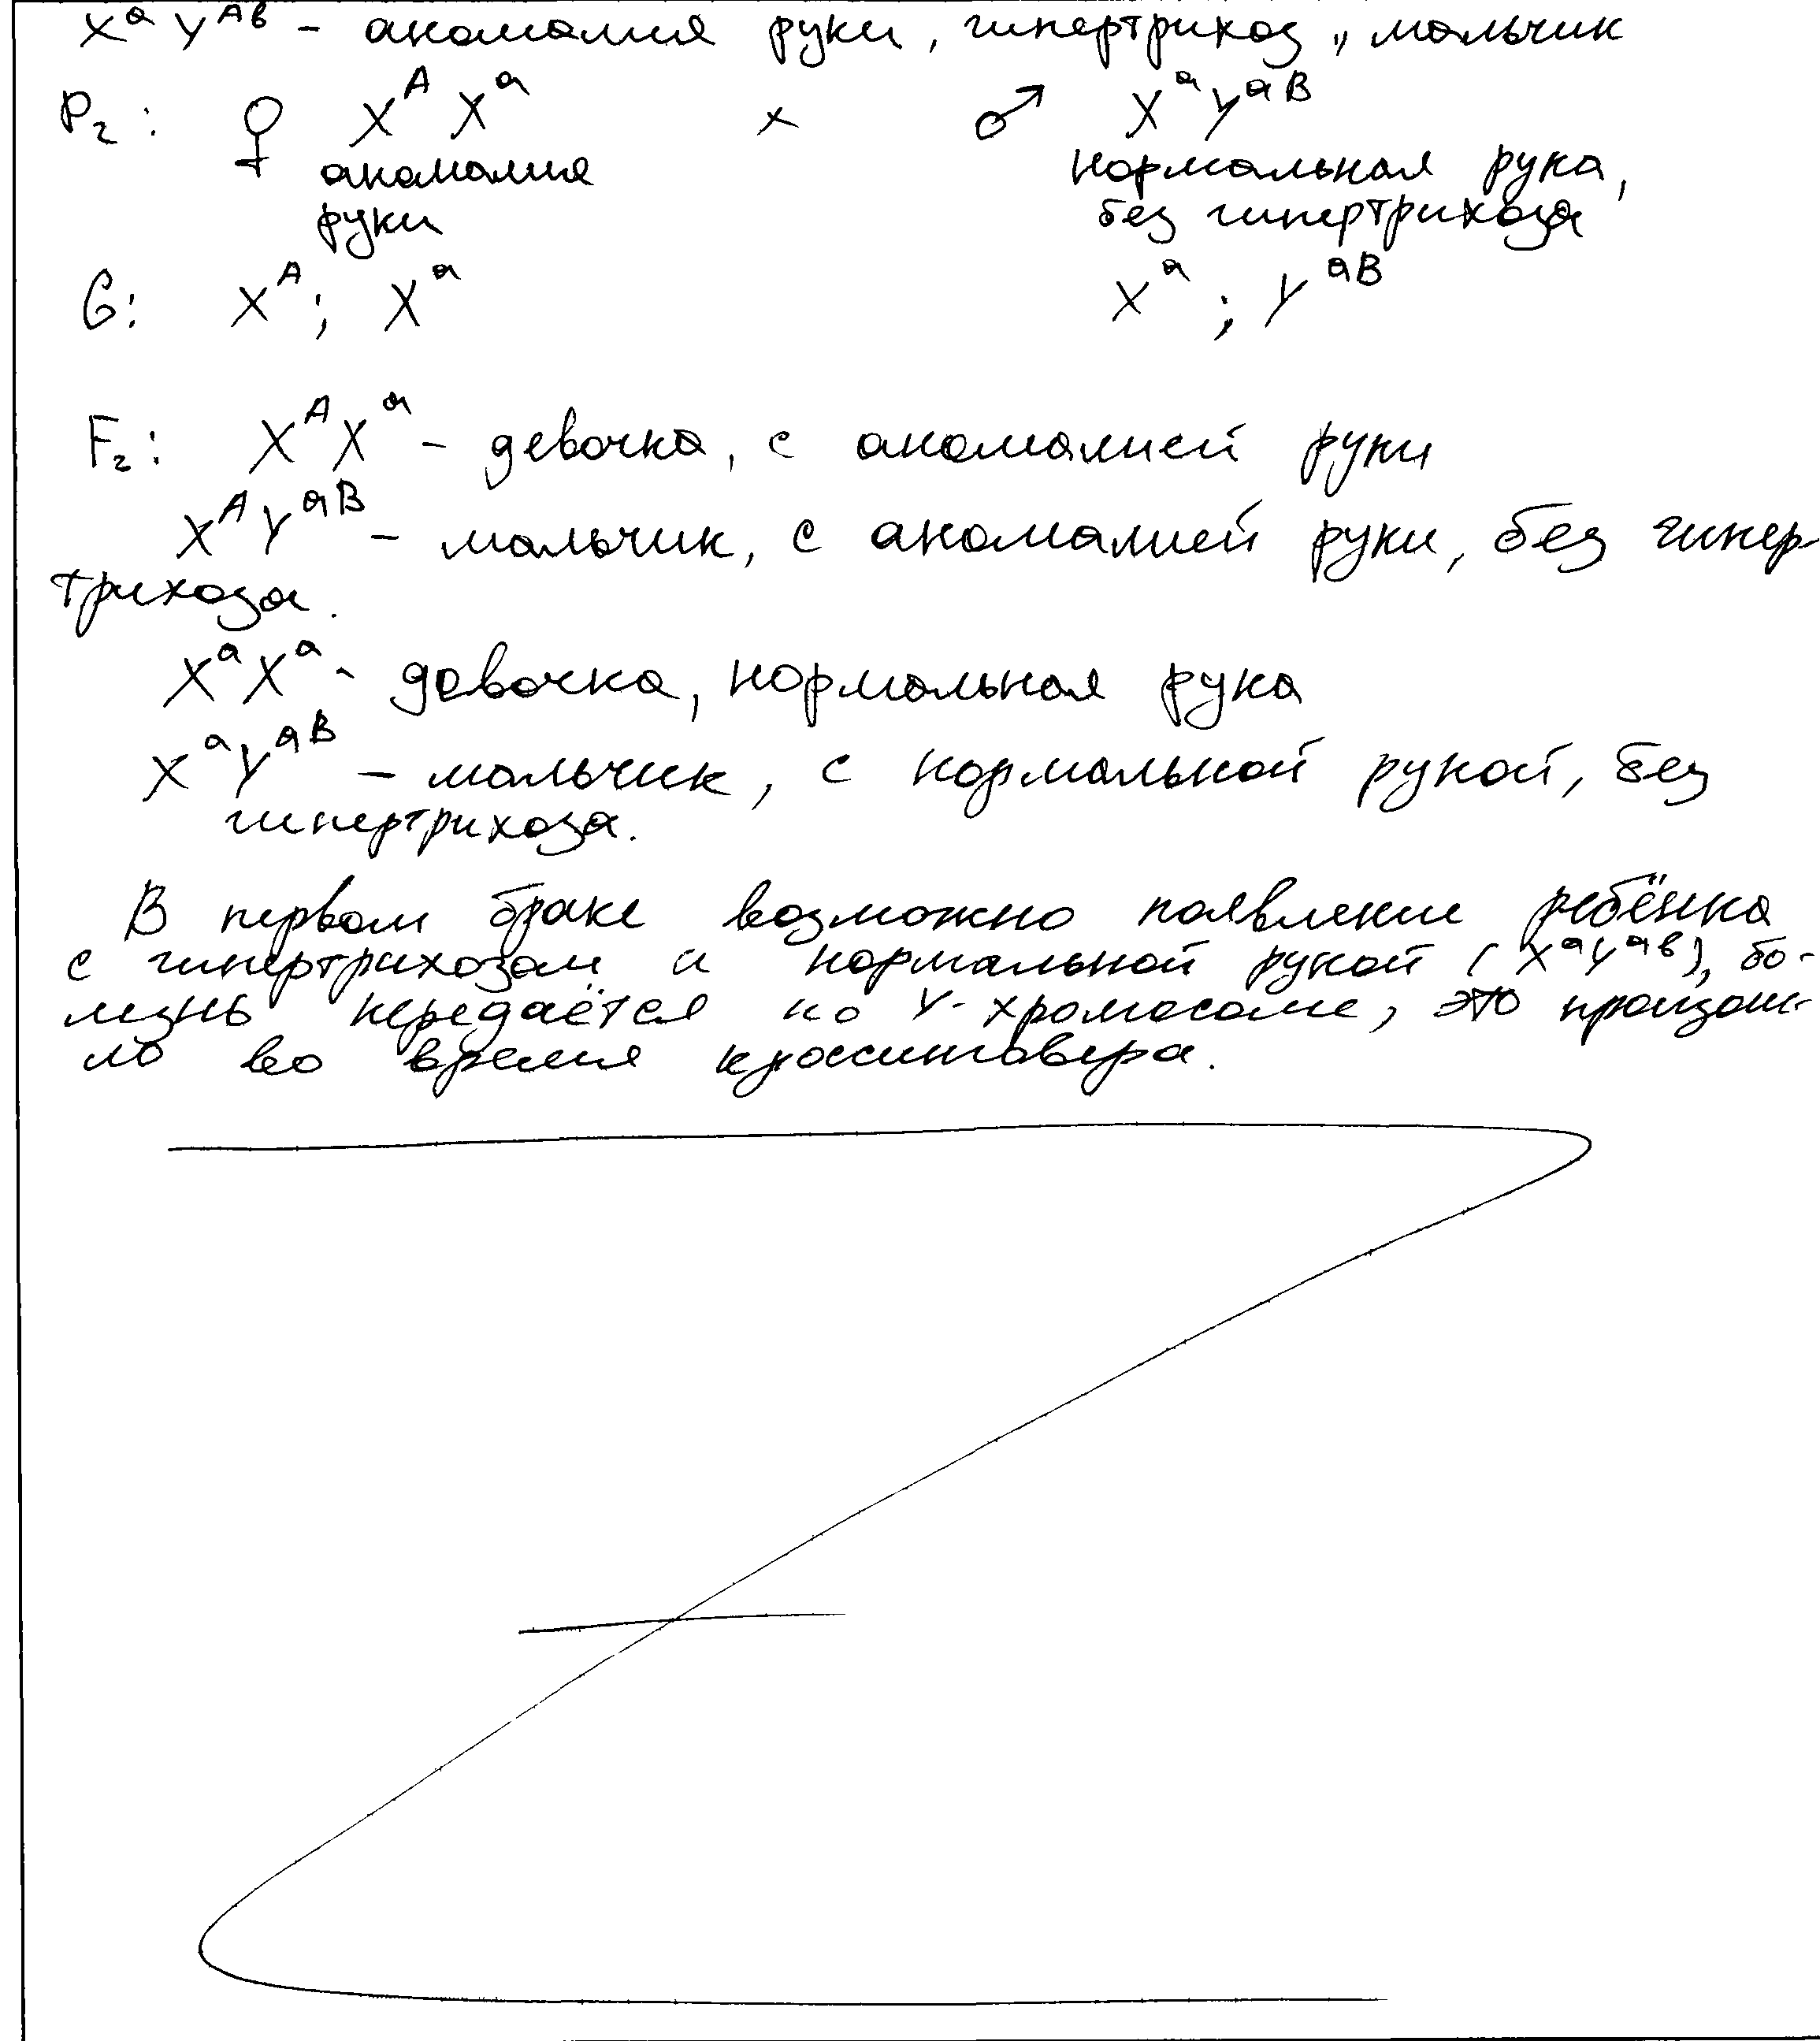 XᵃYᴬᵇ – аномалия руки, гипертрихоз, мальчик
P₂: ♀ XᴬXᵃ × ♂ XᵃYᵃᴮ
аномалия нормальная рука,
руки без гипертрихоза
G: Xᴬ; Xᵃ Xᵃ; Yᵃᴮ
F₂: XᴬXᵃ – девочка, с аномалией руки
XᴬYᵃᴮ – мальчик, с аномалией руки, без гипер-
трихоза.
XᵃXᵃ - девочка, нормальная рука
XᵃYᵃᴮ – мальчик, с нормальной рукой, без
гипертрихоза.
В первом браке возможно появление ребёнка
с гипертрихозом и нормальной рукой (XᵃYᵃᵇ), бо-
лезнь передаётся по Y-хромосоме, это произош-
ло во время кроссинговера.